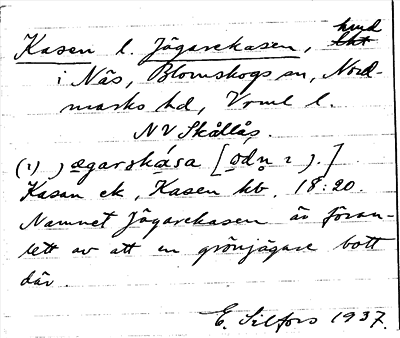 Kasen l. Jägarekasen, hmd
i Näs, Blomskogs sn, Nord-
marks hd, Vrml l.
NV Skållås.
(1) ) ægarskása [odn 2 ).]
Kasan ek, Kasen kb. 18:20.
Namnet Jägarekasen är föran-
lett av att en grönjägare bott
där.
E. Silfors 1937.